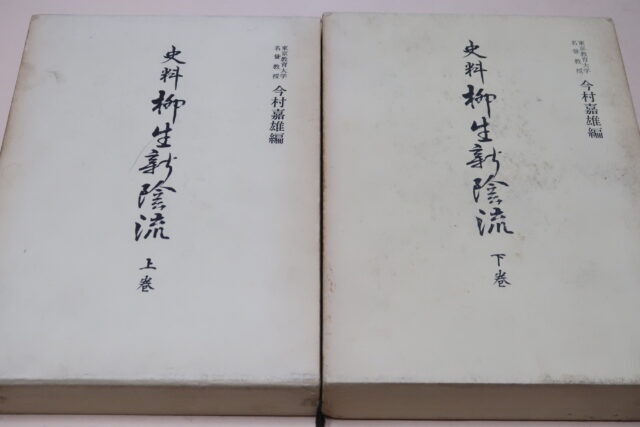 東京教育大学
名誉教授
今村嘉雄編
史料
柳生新陰流
上巻
東京教育大学
名誉教授
今村嘉雄編
史料
柳生新陰流
下巻